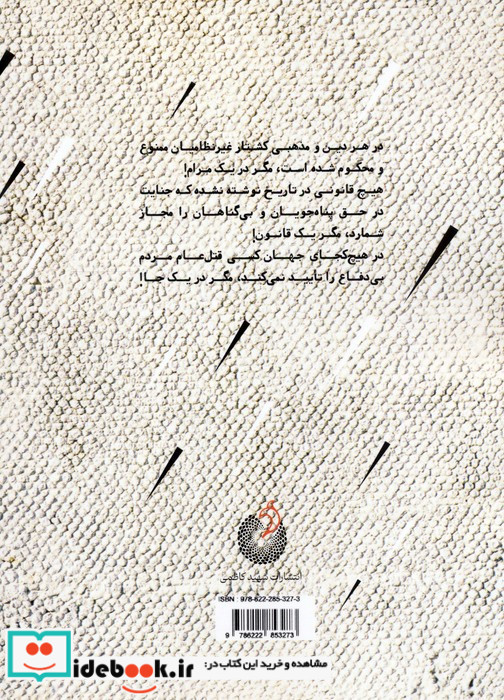 در هر دین و مذهبی کشتار غیرنظامیان ممنوع
و محکوم شده است، مگر در یک مرام!
هیچ قانونی در تاریخ نوشته نشده که جنایت
در حق پناه‌جویان و بی‌گناهان را مجاز
شمارد، مگر یک قانون!
در هیچ‌کجای جهان کسی قتل‌عام مردم
بی‌دفاع را تأیید نمی‌کند، مگر در یک جا!
انتشارات شهید کاظمی
ISBN 978-622-285-327-3
9 786222 853273
idebook.ir
مشاهده و خرید این کتاب در: